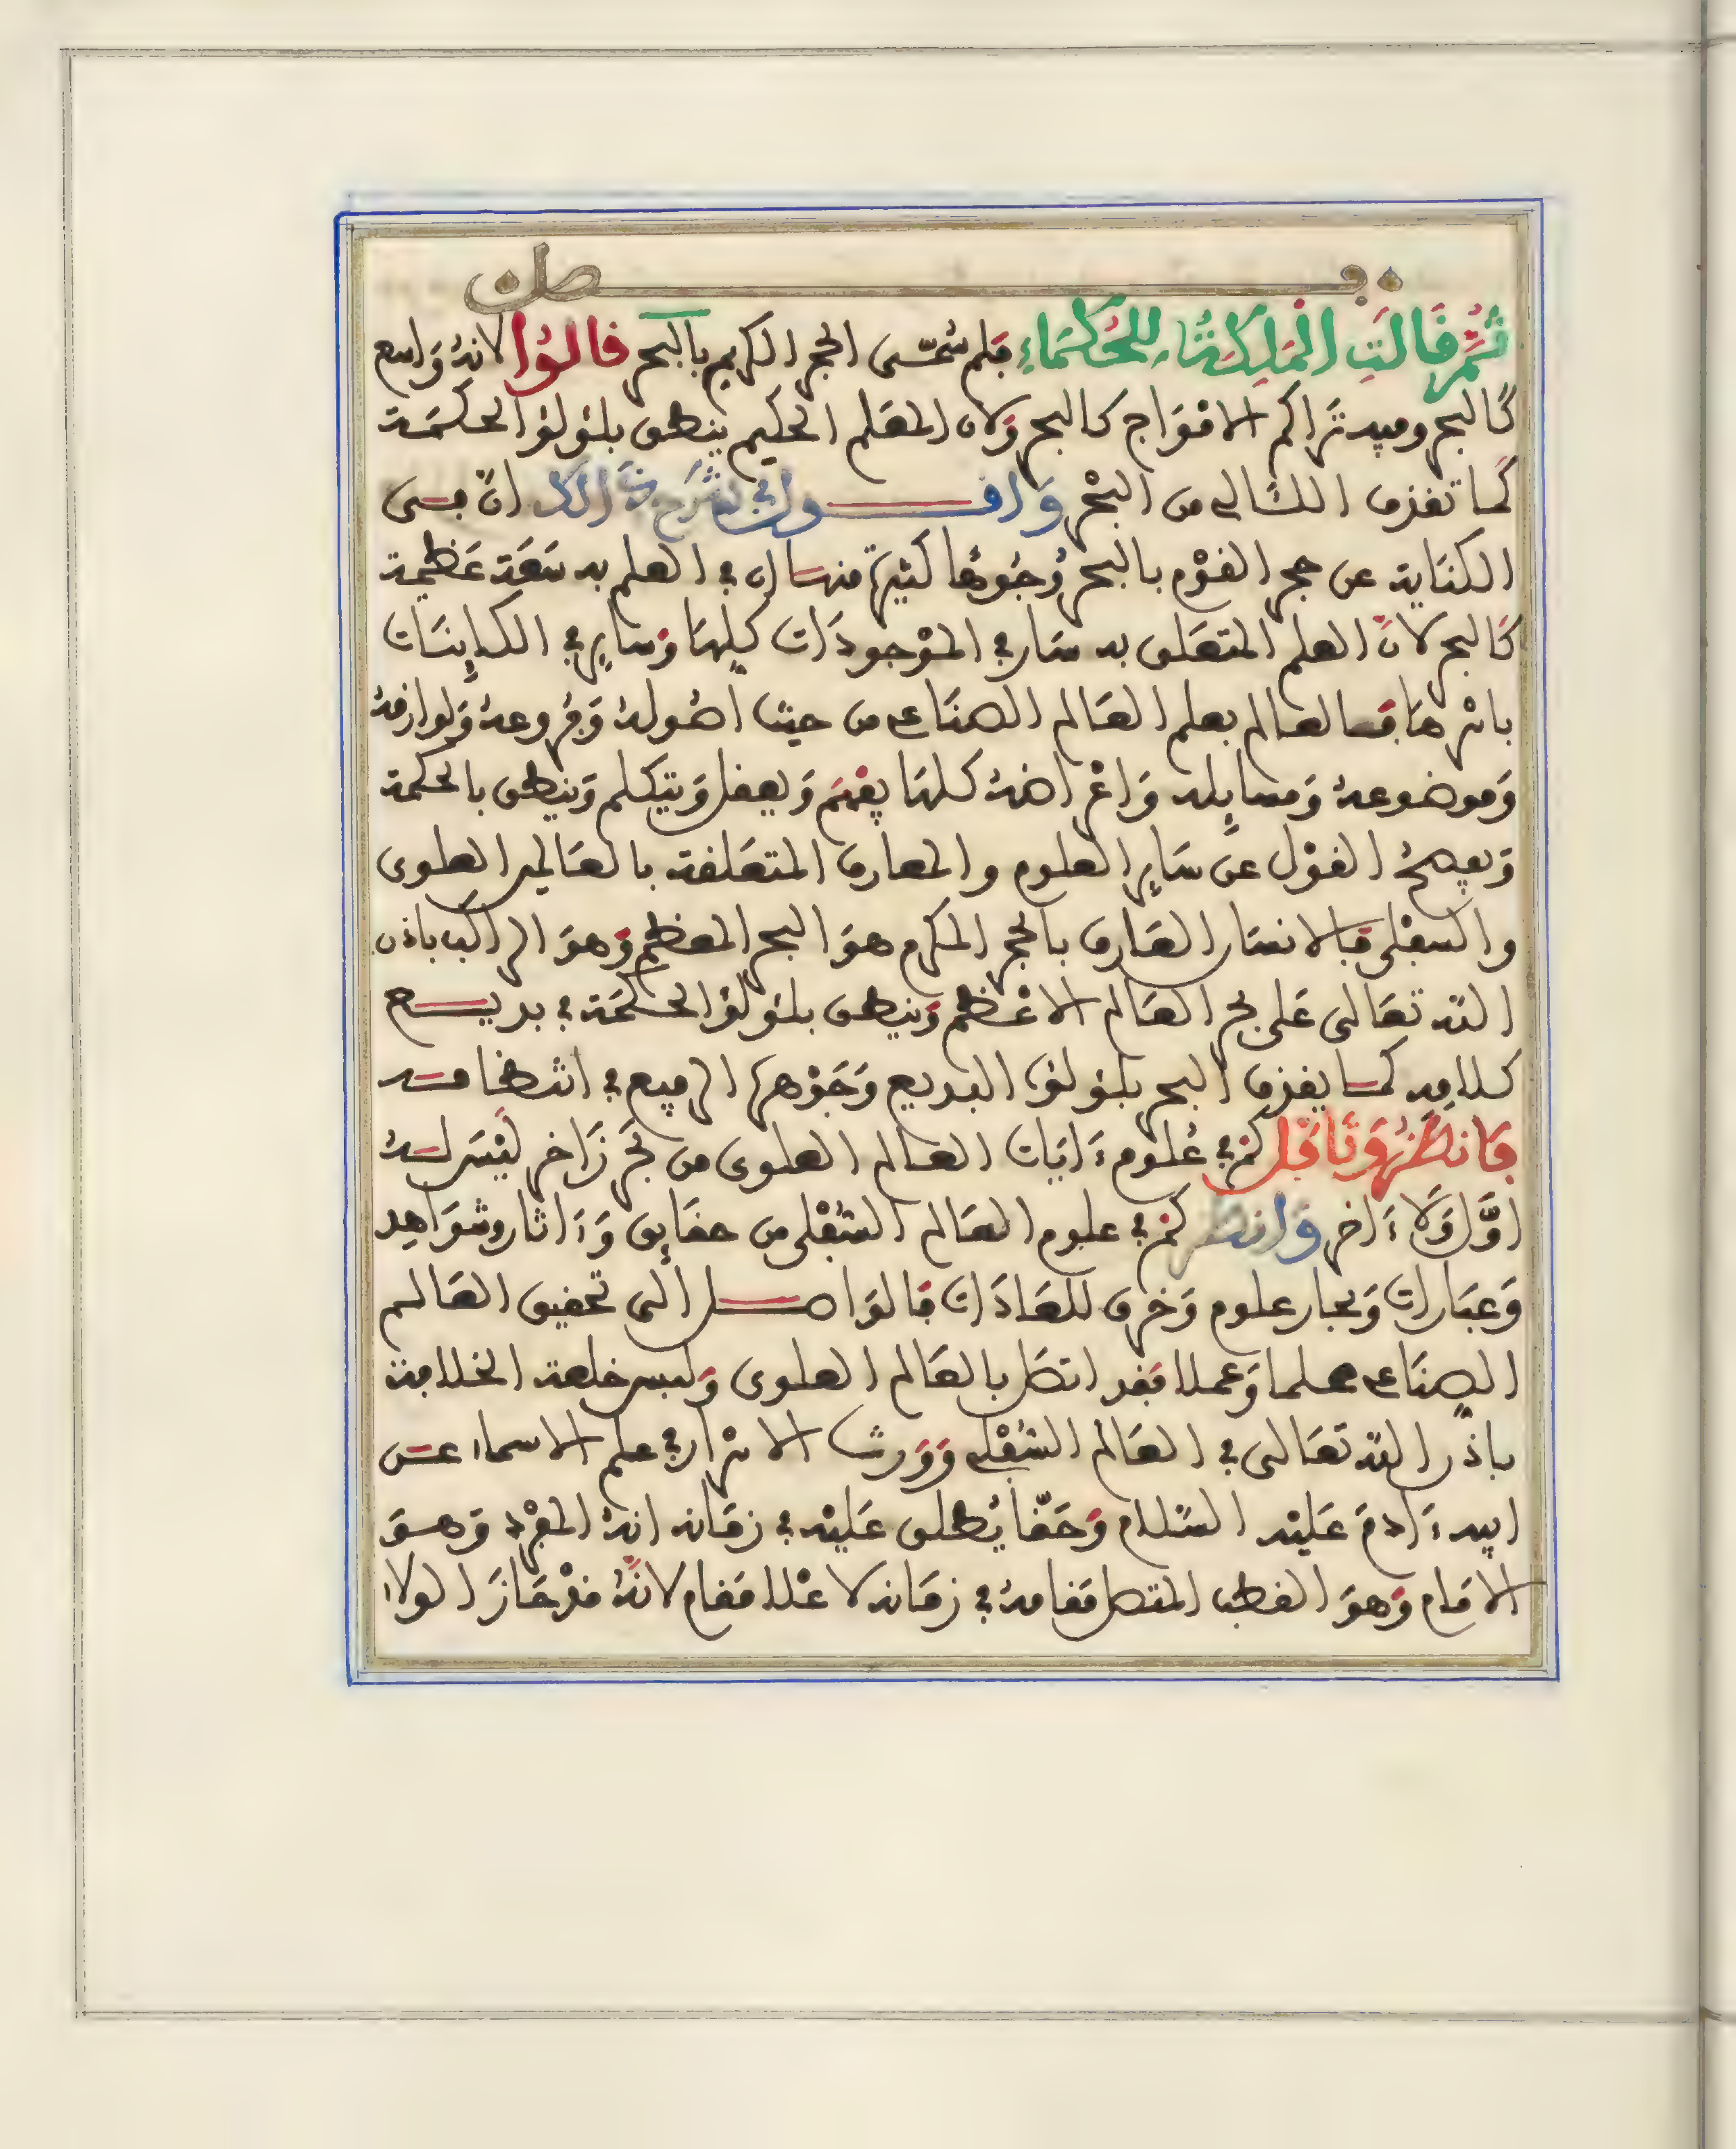 فصل
ثُمَّ قَالَتِ الْمَلِكَةُ لِلْحُكَمَاءِ فلم سُمّى الحجر الكريم بالبحر قالوا لانهُ وَاسع
كالبحر وفيه تَراكم الامْوَاج كالبحر وَلان المعَلم الحكيم ينطق بلؤلؤ الحكمَة
كما تقذف اللئالى من البحْر وَاقول في شرح ذَالكَ انّ فى
الكنَاية عن حجر القوْم بالبحر وُجُوهًا كثيرة منها ان في العلم به سَعَة عَظيمة
كَالبحر لانّ العلم المتعَلق به سَار في الموْجودَات كلهَا وَساير في الكاينَات
باسْرهَا فما لعالم بعلم العَالم الصنَاعى من حيث اصُولهُ وَفروعهُ وَلوازمهُ
وَموضوعهُ وَمسايله وَاغْراضهُ كلهَا يفهَم وَيعقل وَيتكلم وَينطق بالحكمة
وَيفصحُ القوْل عن سَاير العلوم والمعارف المتعَلقة بالعَالم العلوى
والسفْلى فبالانسَان العَارف بالحجر المكرم هوَ البحر المعظم وَهوَ الراكب باذن
الله تعَالى عَلى بحر العَالم الاعْظم وَينطق بلؤلؤ الحكمَة في بديـــع
كلامه كما يقذف البحر بلؤلؤه البديع وَجَوْهره الرفيع في انتظامه
فَانظُرْ وَتَأمَّل كم في عُلوم ءَايَات العَالم العلوى من بحَر زَاخر ليْسَ لهُ
اوَّل وَلا ءَاخر وَانظر كم في علوم العَالم السّفْلى من حقَايق وَءَاثار وشوَاهِد
وَعبَارات وَبحار علوم وَخرق للعَادَات فالوَاصــل الى تحقيق العَالم
الصنَاعى علما وَعملا فقد اتصَل بالعَالم العلوى وَلبس خلعة الخلافة
باذن الله تعَالى في العَالم السّفْلى وَوَرث الاسْرار في علم الاسماء عن
ابيه ءَادمَ عَليْه السَّلام وَحَقّا يُطلق عَليْه في زمَانه انهُ المفْرد وَهوَ
الامَام وَهوَ القطب المتصل مقامهُ في زمَانه لاعْلا مَقام لانّهُ قدْ حَازَ الولاء